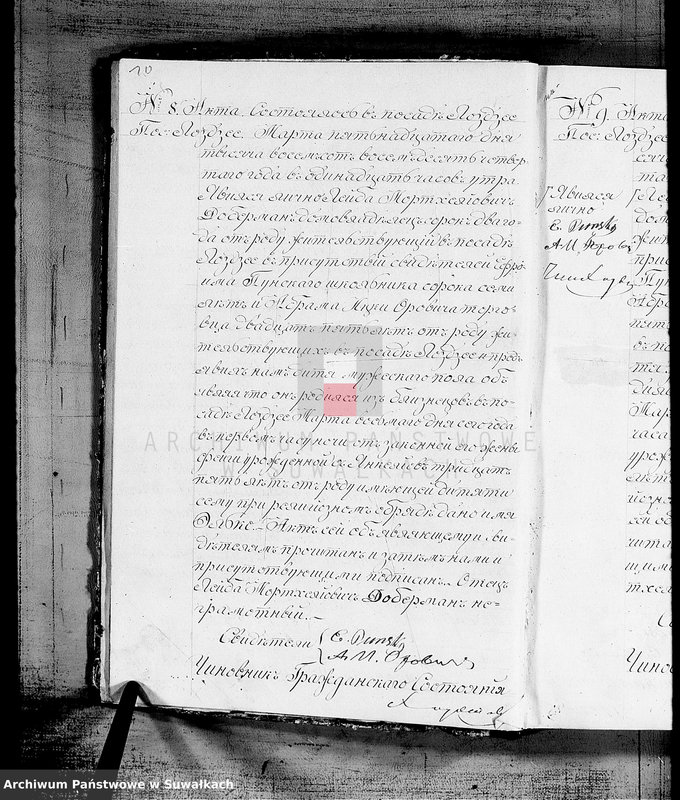 10
№ 8. Акта. Состоялось въ посадѣ Лоздзее
Пос: Лоздзее. Марта пятьнадцатаго дня
тысяча восемьсотъ восемьдесятъ четвер
таго года въ одинадцать часовъ утра
Явился лично Лейба Мортхелiовичъ
Доберманъ домовладѣлецъ сорокъ два го-
да отъ роду жительствующiй въ посадѣ
Лоздзее въ присутствiй свидѣтелей Ефрo-
има Пунскаго школьника сорока семи
лѣтъ и Абрама Мцки Оровича торго-
вца двадцать пять лѣтъ отъ роду жи-
тельствующихъ въ посадѣ Лоздзее и предъ
явилъ намъ дитя мужескаго пола объ
являя что онъ родился изъ близнецовъ въ по-
садѣ Лоздзее Марта восьмаго дня сего года
въ первомъ часу ночи отъ законной его жены
урожденной тридцать
пять лѣтъ отъ роду имѣющей дитяти
сему при религiозномъ обрядѣ дано имя
Актъ сей объявляющему и сви-
дѣтелямъ прочтанъ и затѣмъ нами и
присутствующими подписанъ. Отецъ
Лейба Мортхелiовичъ Доберманъ не-
грамотный.—
Свидѣтели { E. Punsky
A. M. Оровичъ
Чиновникъ Гражданскаго Состоянiя
№ 9. Акта
Пос: Лоздзее
Явился
лично
E. Punsky
A. M. Оровичъ
ARCHIWUM PAŃSTWOWE
W SUWAŁKACH
Archiwum Państwowe w Suwałkach